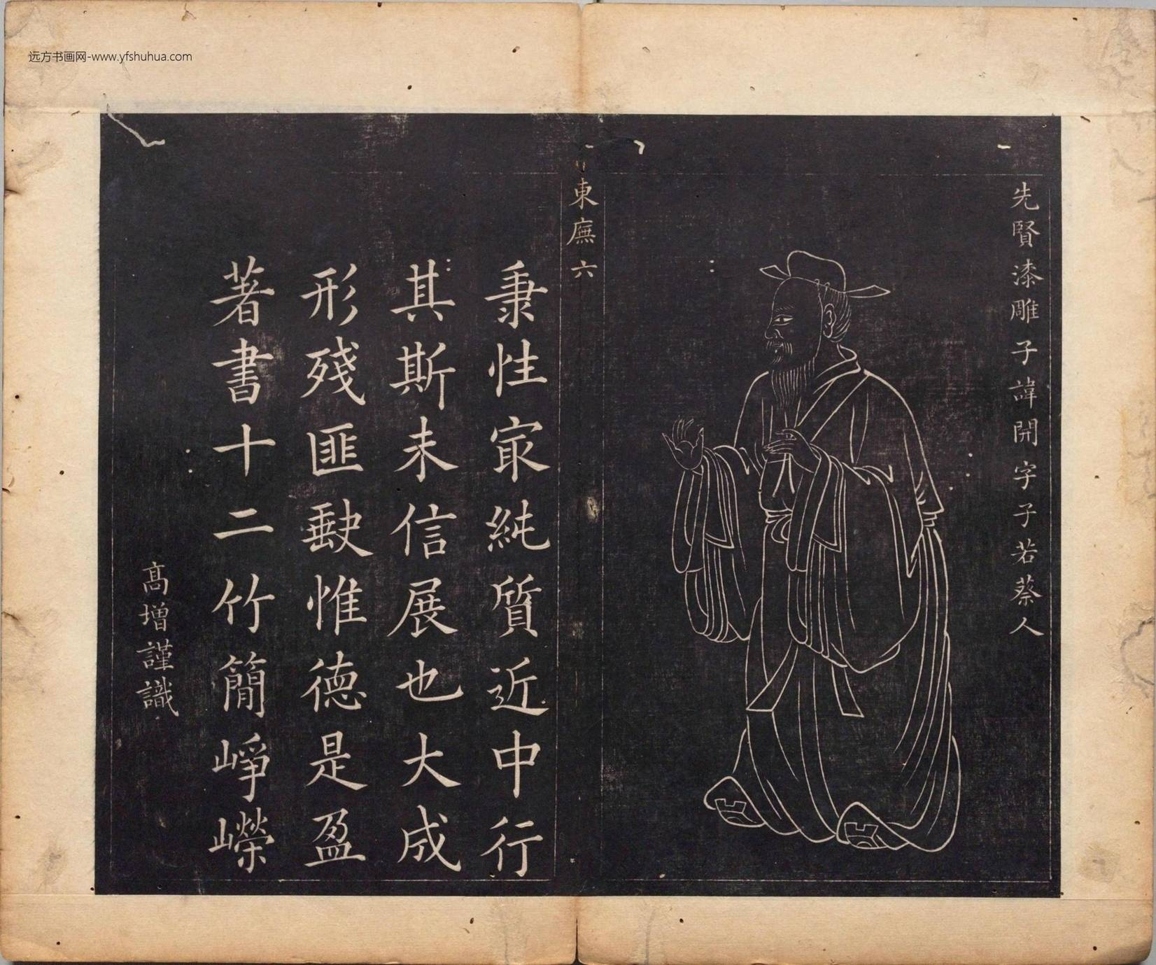 远方书画网-www.yfshuhua.com
先賢漆雕子諱開字子若蔡人
東廡六
秉性冣純質近中行
其斯未信展也大成
形殘匪𧿁惟德是盈
著書十二竹簡崢嶸
高增謹識